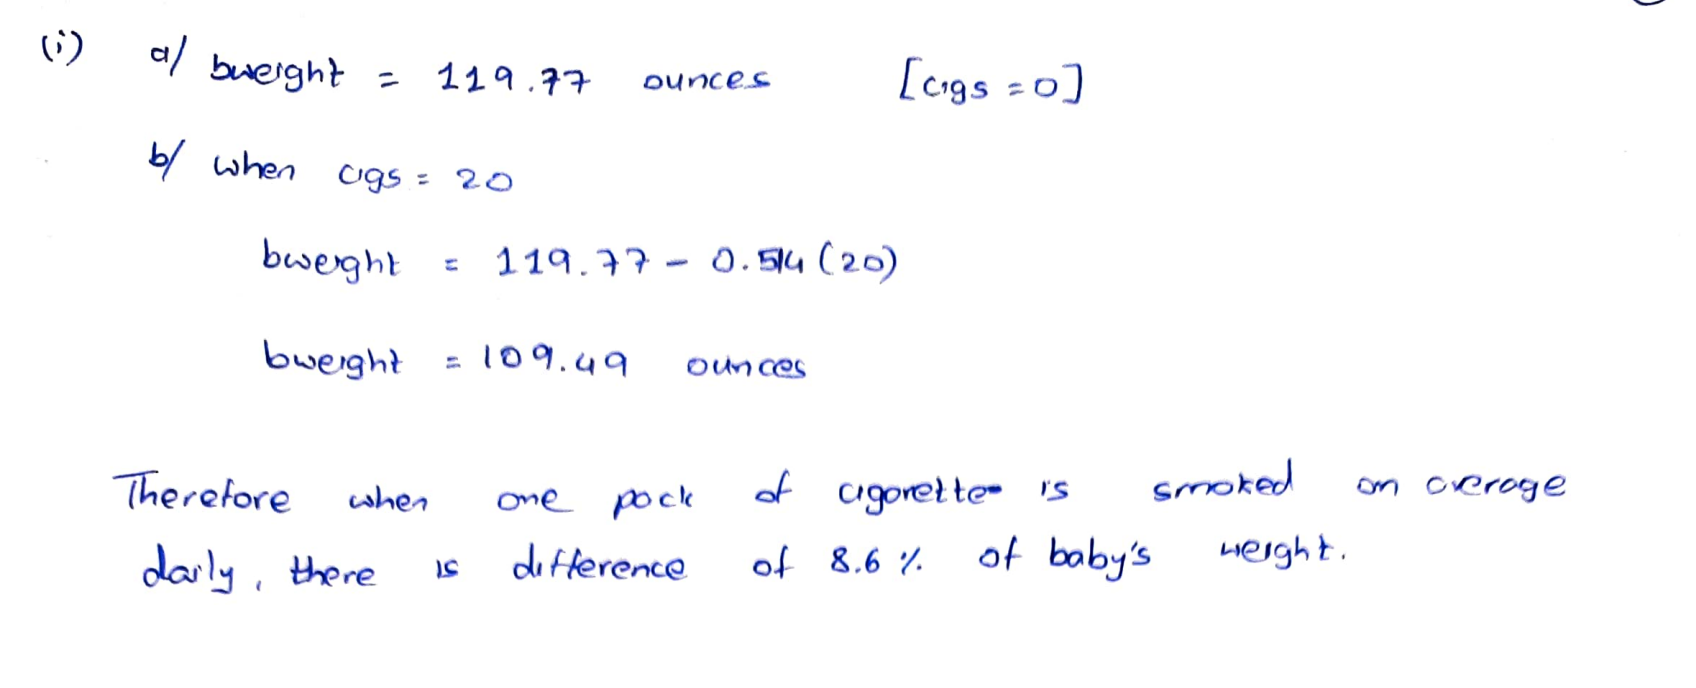 (i) a/ bweight = 119.77 ounces [cigs = 0]
b/ when cigs = 20
bweight = 119.77 - 0.514 (20)
bweight = 109.49 ounces
Therefore when one pack of cigarettes is smoked on average
daily, there is difference of 8.6 % of baby's weight.